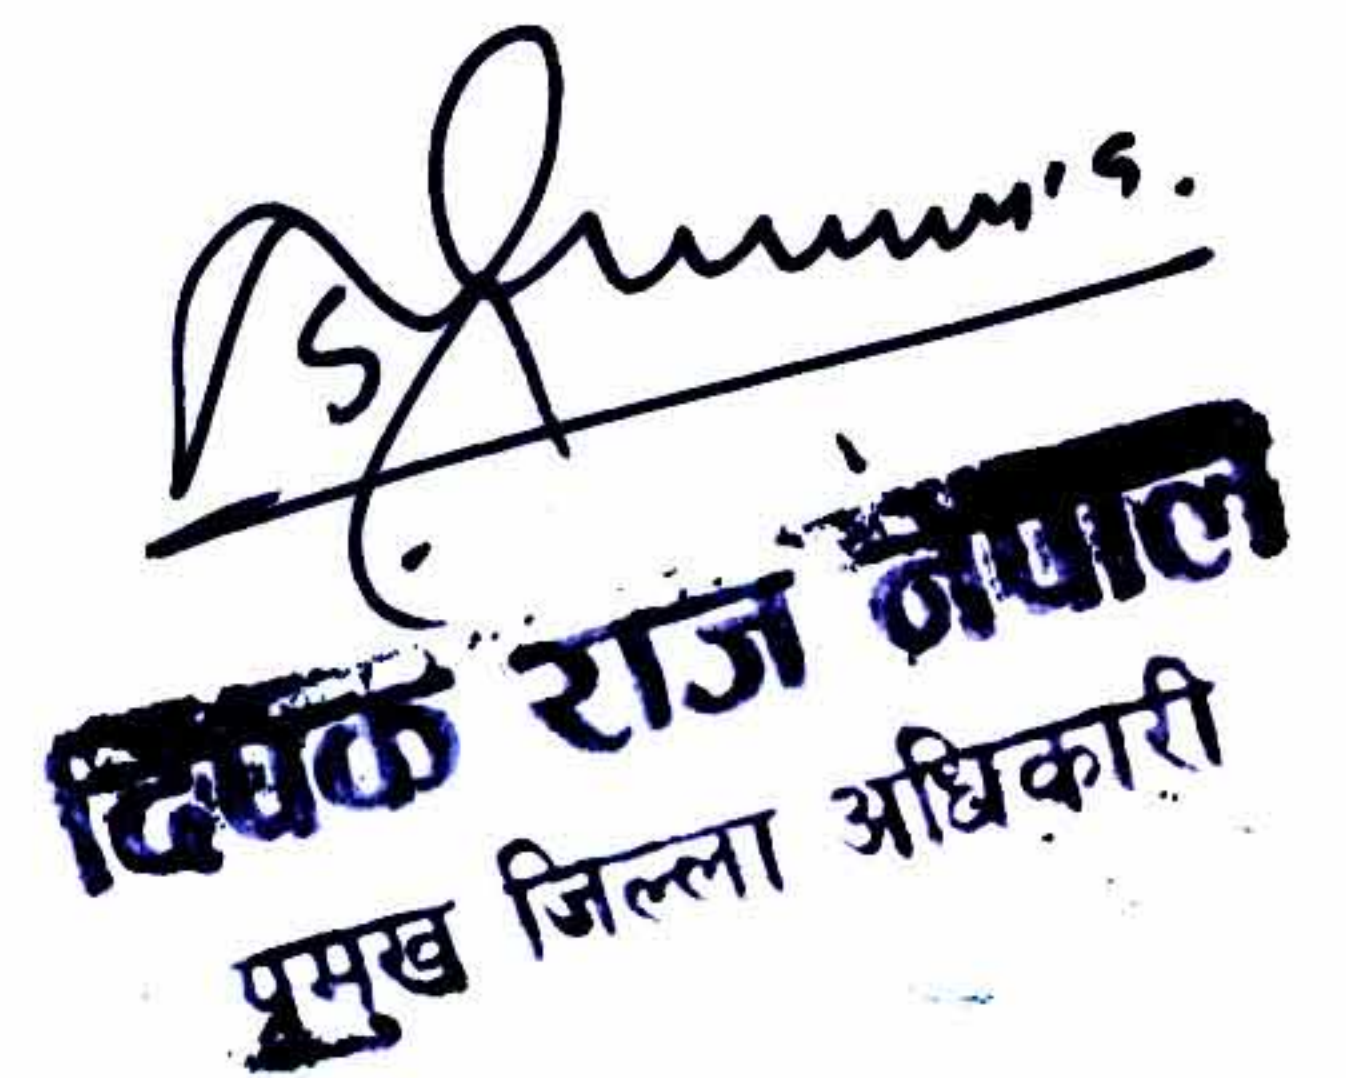 दिपक राज नेपाल
प्रमुख जिल्ला अधिकारी